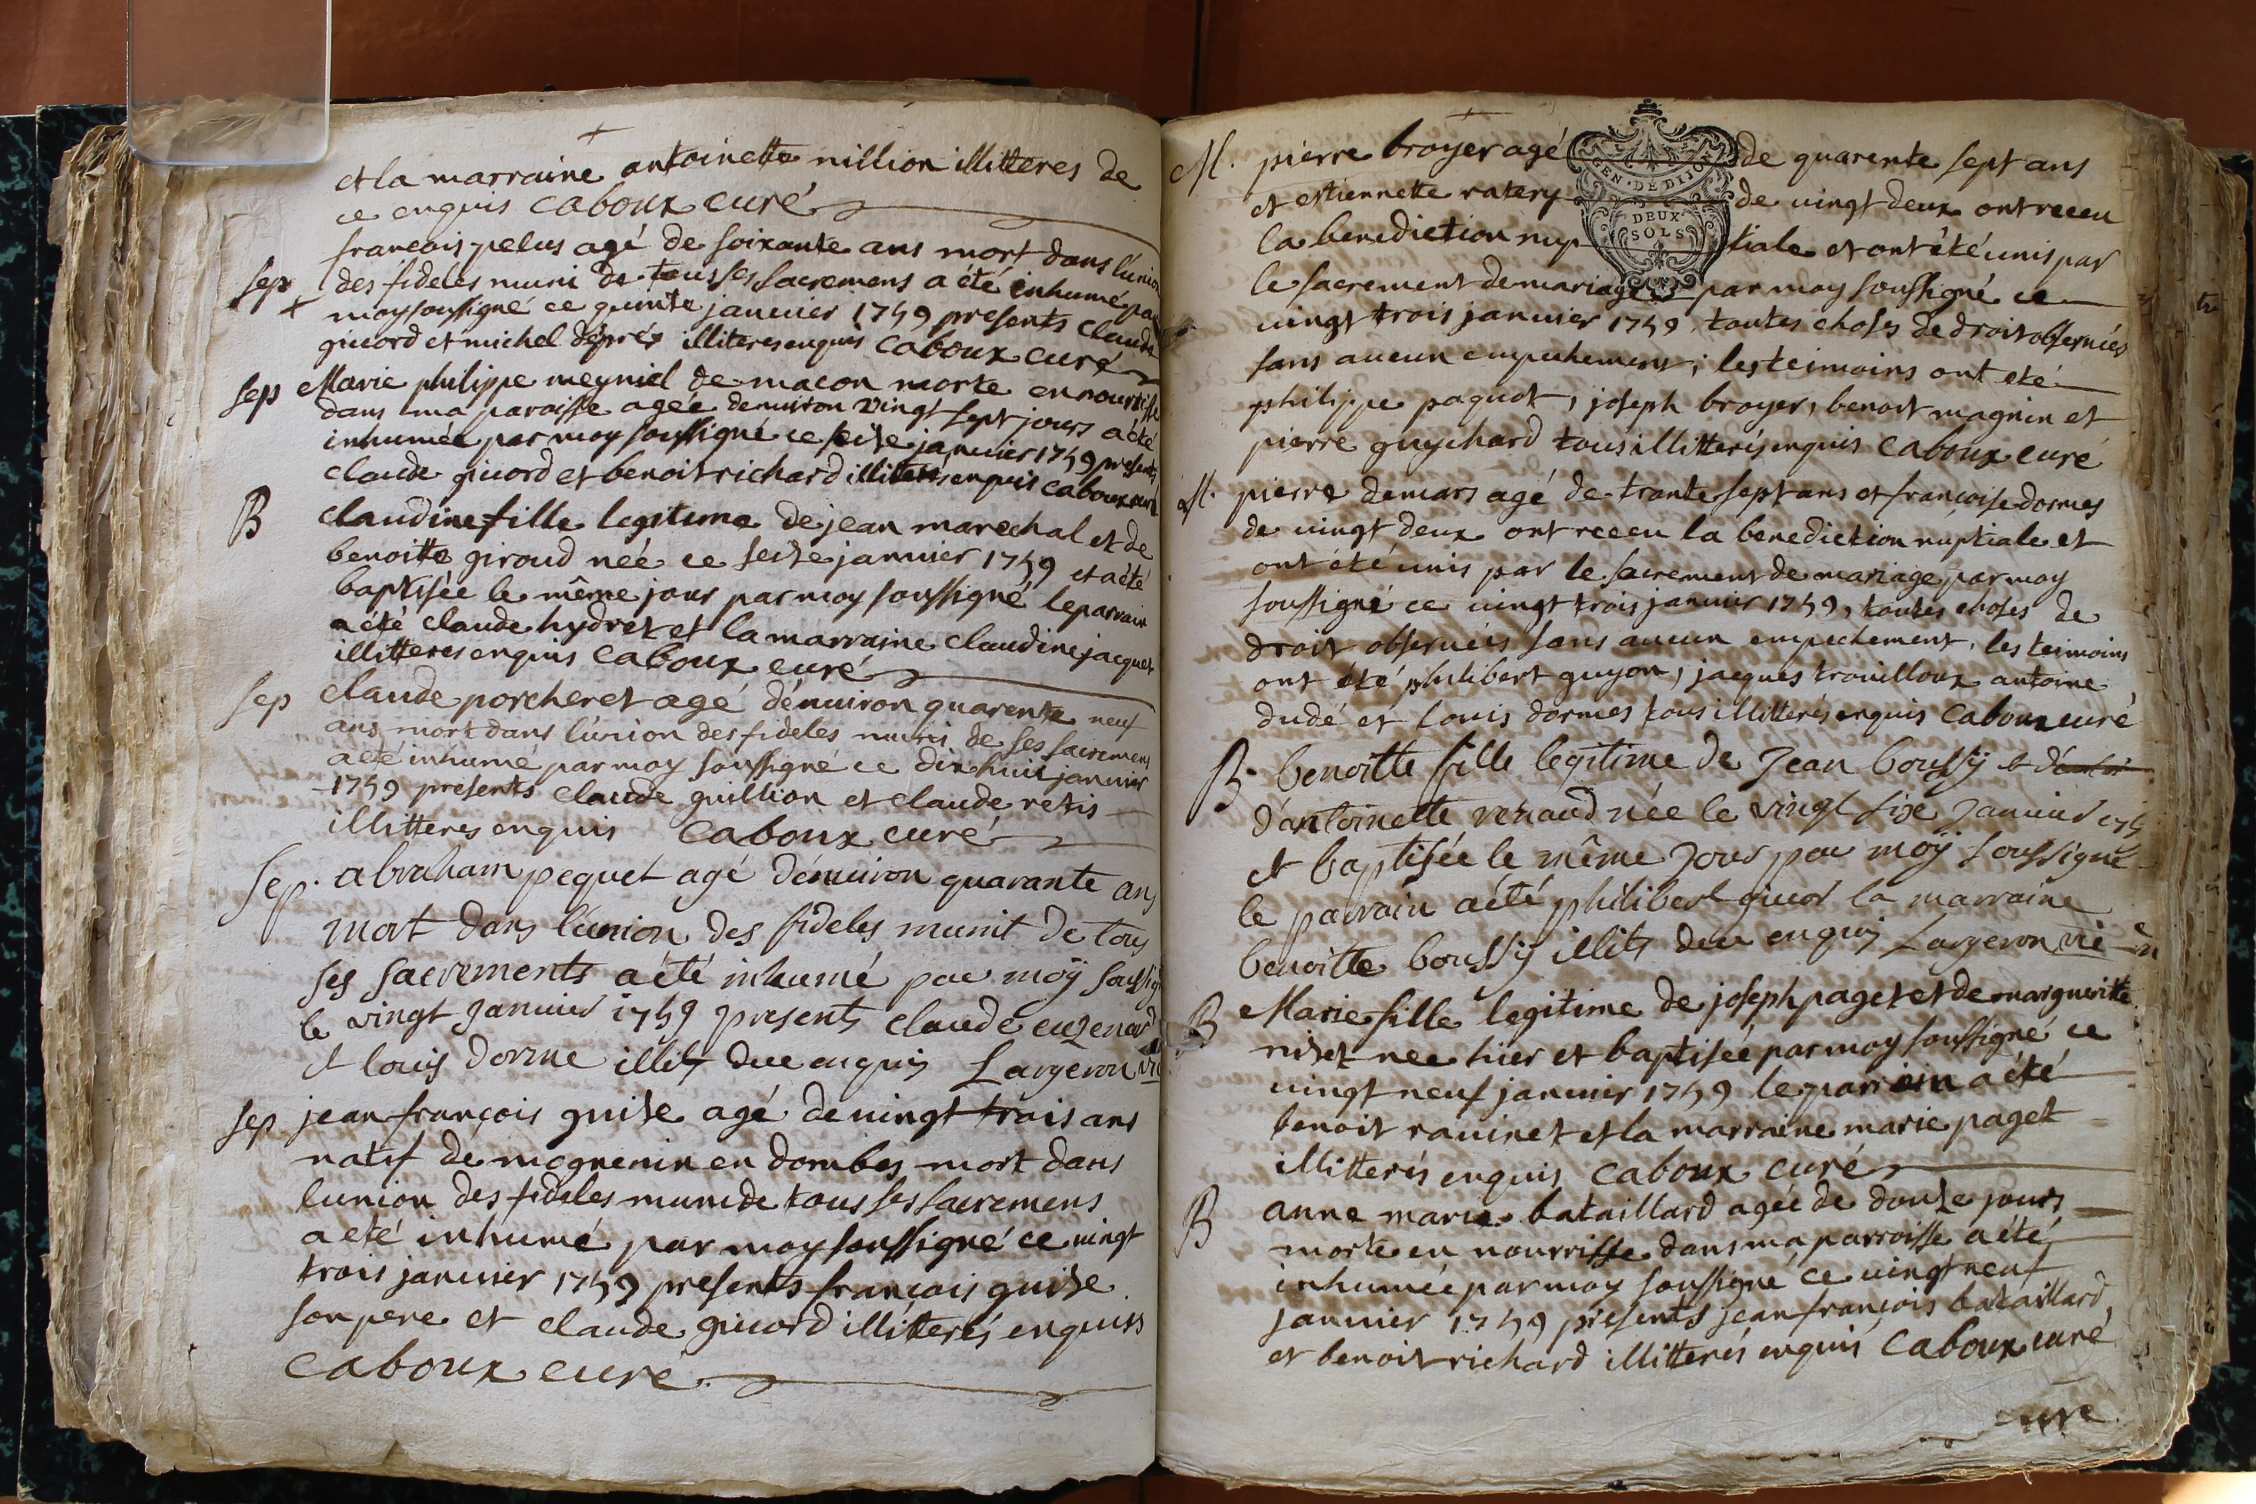 et la marraine antoinette nillion illitteres de
ce enquis Caboux curé
françois pelus agé de soixante ans mort dans l'union
sep des fideles muni de tous ses sacremens a été inhumé par
moy soussigné ce quinte januier 1759 presents claude
giuord et michel déprés illiteres enquis Caboux curé
sep Marie philippe meyniel de macon morte en nourrisse
dans ma paroisse agée denuiron vingt sept jours a été
inhumée par moy soussigné ce seize januier 1759 presents
claude giuord et benoit richard illiterés enquis caboux curé
B claudine fille legitime de jean marechal et de
benoitte giroud née ce seize januier 1759 et a été
baptisée le même jour par moy soussigné le parrain
a été claude hydret et la marraine claudine jacquet
illitteres enquis Caboux curé
sep claude porcheret agé dénuiron quarente neuf
ans mort dans l'union des fideles muni de ses sacremens
a eté inhumé par moy soussigné ce dix huit januier
1759 présents claude guillion et claude retis
illitteres enquis Caboux curé
sep. abraham pequet agé dénuiron quarante ans
mort dans l'union des fideles munit de tous
ses sacrements a été inhumé par moÿ soussigné
le vingt januier 1759 presents claude
et louis dorme illits due enquis Largeron vic
sep jean françois guise agé de uingt trois ans
natif de mognenin en dombes mort dans
lunion des fideles muni de tous ses sacremens
a eté inhumé par moy soussigné ce uingt
trois januier 1759 presents françois guise
son pere et claude giuord illitterés enquis
Caboux curé
M. pierre broyer agé de quarente sept ans
et estiennette ratery de uingt deux ont receu
la benediction nuptiale et ont été unis par
le sacrement de mariage par moy soussigné ce
uingt trois januier 1759 toutes choses de droit obseruées
sans aucun empechement; les teimoins ont eté
philippe paquot, joseph broyer, benoit magnin et
pierre guychard tous illitterés enquis Caboux curé
M. pierre demars agé de trante sept ans et françoise dormes
de uingt deux ont receu la benediction nuptiale et
ont été unis par le sacrement de mariage par moy
soussigné ce uingt trois januier 1759, toutes choses de
droit obseruées sans aucun empechement, les teimoins
ont été philibert guyon, jacques trouilloux antoine
dudé et louis dormes tous illitterés enquis Caboux curé
B. benoitte fille legitime de Jean boussÿ
d'antoinette renaud née le vingt six Januier 1759
et baptisée le même Jour par moÿ soussigné
le parrain a été philibert giuor la marraine
benoitte boussÿ illits due enquis Largeron vic
B Marie fille legitime de joseph paget et de margueritte
nizet née hier et baptisée par moy soussigné ce
uingt neuf januier 1759 le parrain a été
benoit rauinet et la marraine marie paget
illitterés enquis Caboux curé
B anne marie bataillard agée de douze jours
morte en nourrisse dans ma parroisse a été
inhumée par moy soussigné ce uingt neuf
januier 1759 présents jean françois bataillard,
et benoit richard illitterés enquis Caboux curé
curé
EN. DE DIJON
DEUX
SOLS